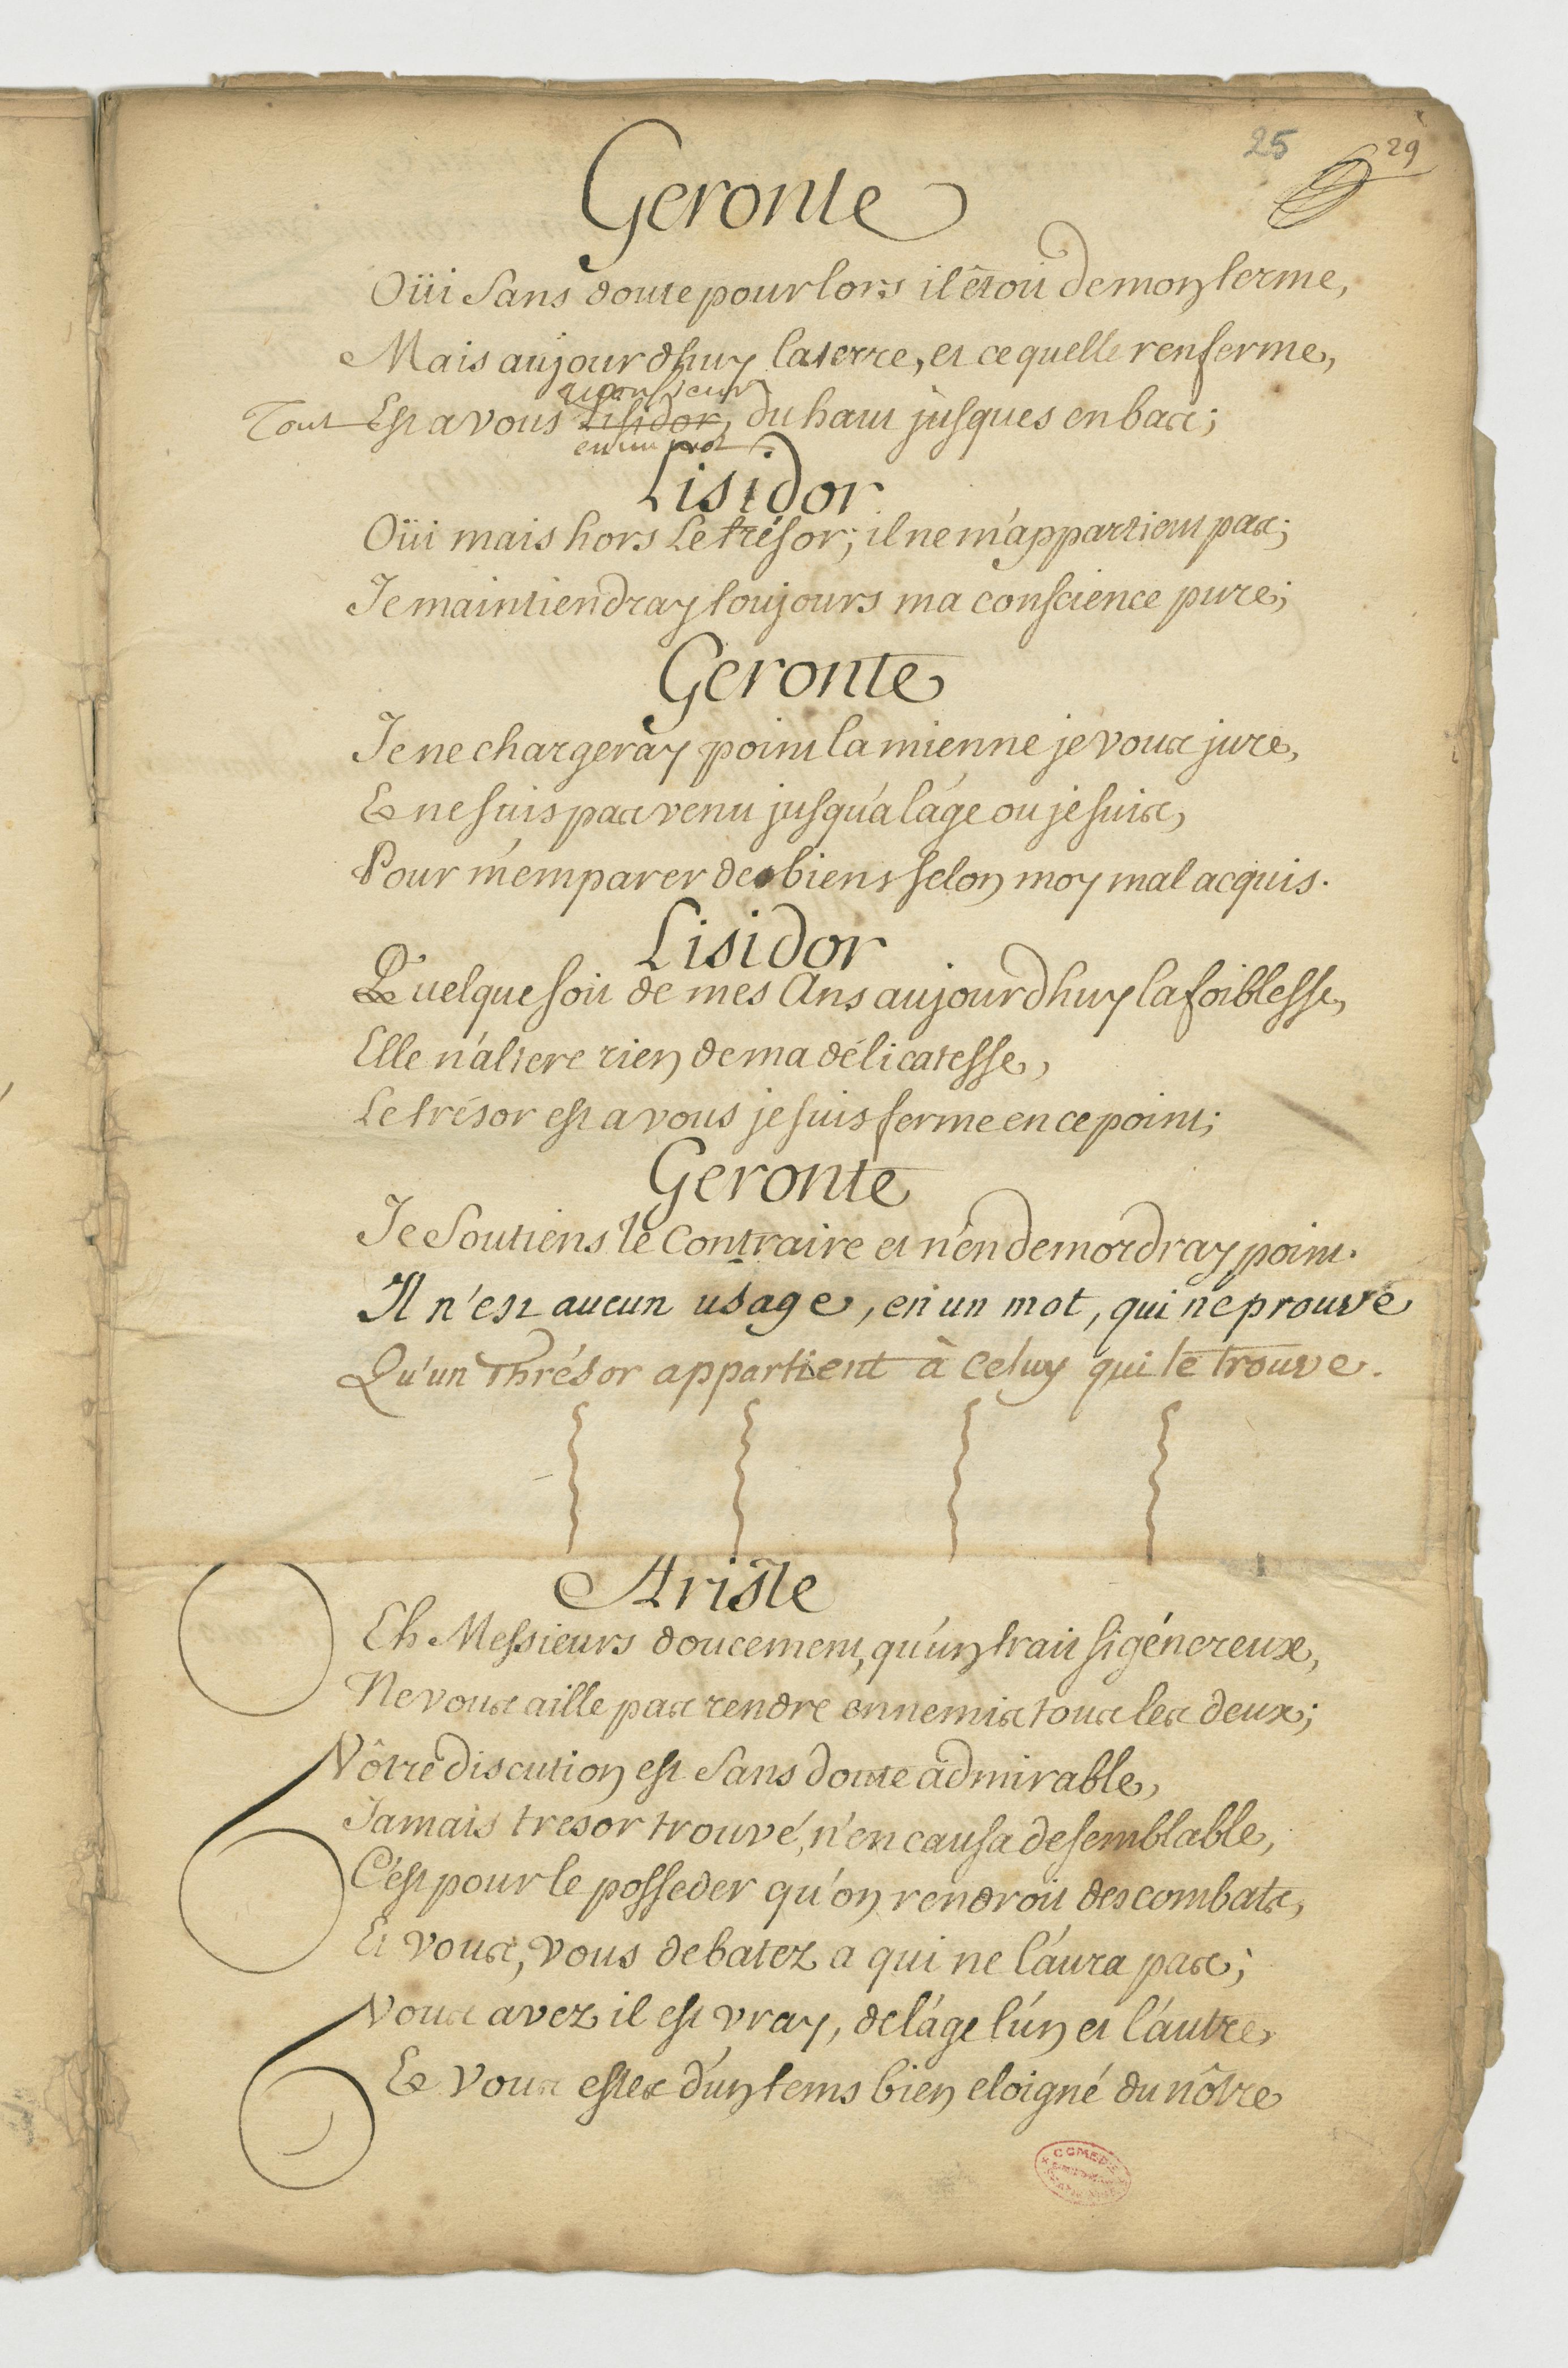 25
29
Geronte
Oüi Sans doute pour lors il êtoit de mon terme,
Mais aujourdhuy la terre, et ce quelle renferme,
monsieur
Tout Est a vous Lisidor, du haut jusques en bas;
en un mot
Lisidor
Oüi mais hors Le trésor; il ne m'appartient pas;
Je maintiendray toujours ma conscience pure;
Geronte
Je ne chargeray point la mienne je vous jure,
Et ne suis pas venu jusqu'a l'age ou je suis,
Pour m'emparer des biens selon moy mal acquis.
Lisidor
Quelque soit de mes Ans aujourdhuy la foiblesse,
Elle n'altere rien de ma délicatesse,
Le trésor est a vous je suis ferme en ce point;
Geronte
Je Soutiens le Contraire et n'en demordray point.
Il n'est aucun usage, en un mot, qui ne prouve
Qu'un Thrésor appartient à celuy qui le trouve.
Ariste
Eh Messieurs doucement, qu'un trait si génereux,
Ne vous aille pas rendre ennemis tous les deux;
Vôtre discution est Sans doute admirable,
Jamais tresor trouvé, n'en causa de semblable,
C'est pour le posseder qu'on rendroit des combats,
Et vous, vous debatez a qui ne l'aura pas;
Vous avez il est vray, de l'âge l'un et l'autre,
Et vous estes d'un tems bien eloigné du nôtre